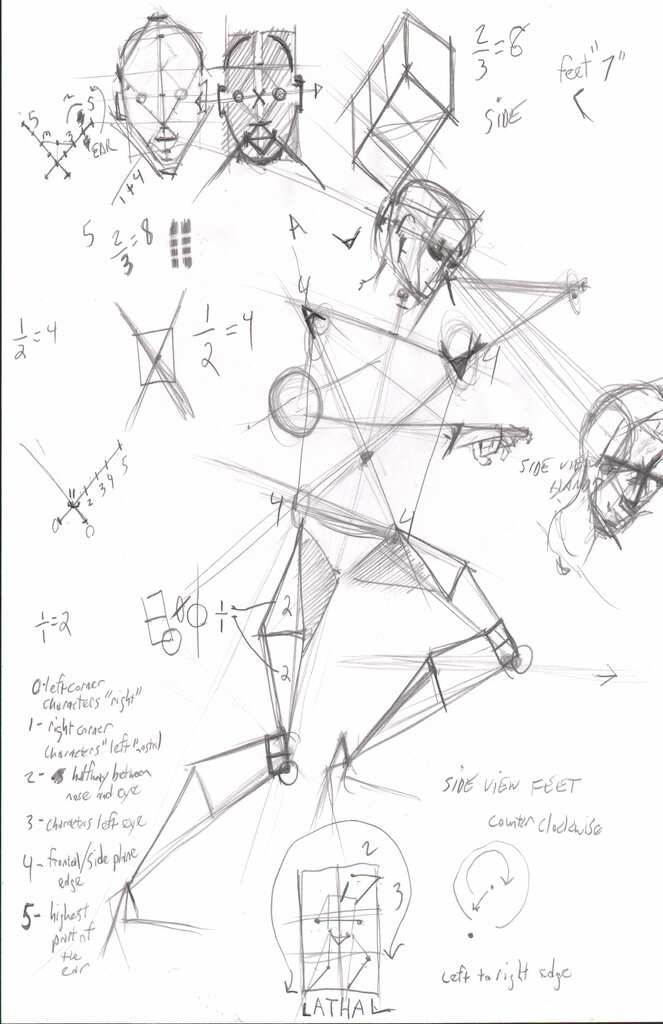 2/3=8
feet "7"
SIDE
5
EAR
1+4
5 2/3=8
A
4
1/2=4
1/2=4
4
SIDE VIEW
HAND
2 3 4 5
0 0
4
4
1/1=2
1/1
2
2
0-left corner
characters "right"
1- right corner
characters "left" nostril
2- halfway between
nose and eye
3- characters left eye
4- frontal/side plane
edge
5- highest
point of
the
ear
SIDE VIEW FEET
counter clockwise
2
1
3
left to right edge
LATHAL